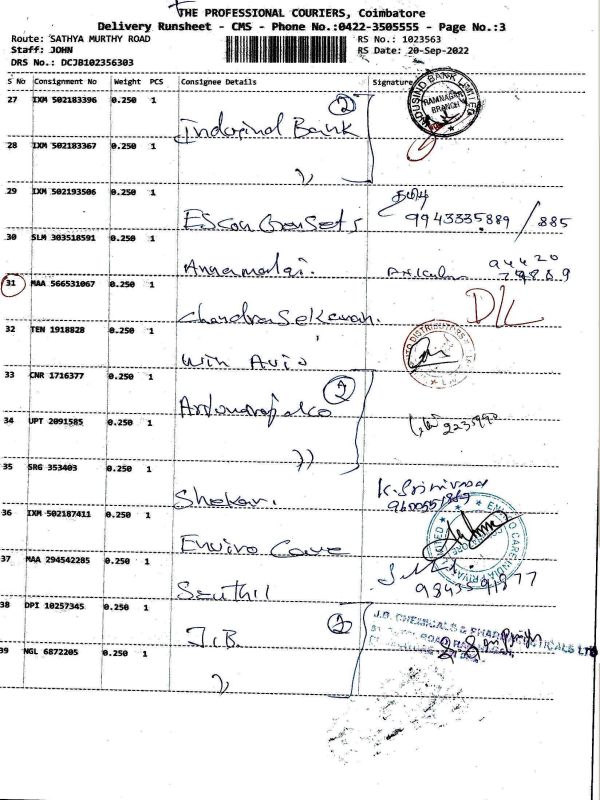 THE PROFESSIONAL COURIERS, Coimbatore
Delivery Runsheet - CMS - Phone No.:0422-3505555 - Page No.:3
Route: SATHYA MURTHY ROAD RS No.: 1023563
Staff: JOHN RS Date: 20-Sep-2022
DRS No.: DCJB102356303
S No Consignment No Weight PCS Consignee Details Signature
27 IXM 502183396 0.250 1 Indusind Bank 2
INDUSIND BANK LIMITED RAMNAGAR BRANCH
28 IXM 502183367 0.250 1 "
29 IXM 502193506 0.250 1 Escon Gensets தமிழ் 9943335889 / 885
30 SLM 303518591 0.250 1 Annamalai.
31 MAA 566531067 0.250 1 Chandrasekaran. DL
32 TEN 1918828 0.250 1 Win Avio
33 CNR 1716377 0.250 1 2
34 UPT 2091585 0.250 1 " 2235990
35 SRG 353403 0.250 1 Shekar. K. Srinivasa
9600551869
36 IXM 502187411 0.250 1 Enviro Care
ENVIRO CARE INDIA PRIVATE LIMITED
37 MAA 294542285 0.250 1 Senthil 9843591877
38 DPI 10257345 0.250 1 J.B. 2
J.B. CHEMICALS & PHARMACEUTICALS LTD
39 NGL 6872205 0.250 1 "